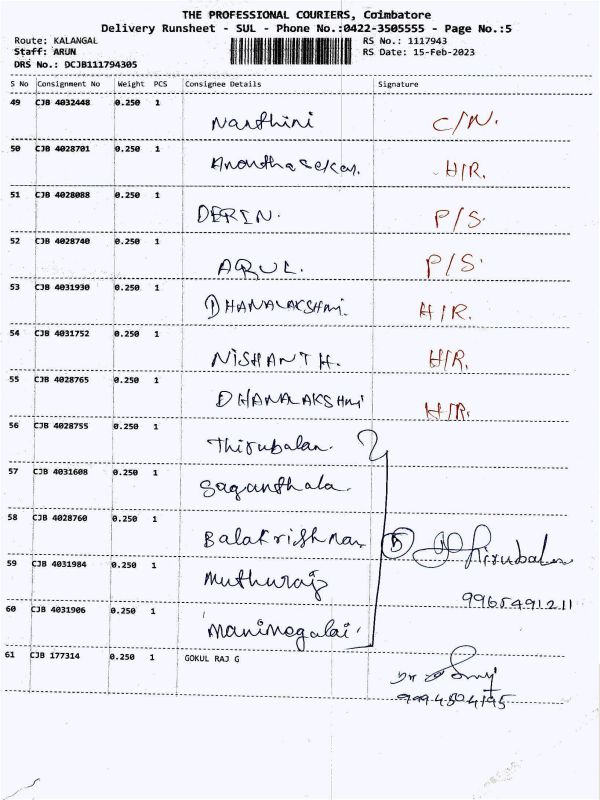 THE PROFESSIONAL COURIERS, Coimbatore
Delivery Runsheet - SUL - Phone No.:0422-3505555 - Page No.:5
Route: KALANGAL RS No.: 1117943
Staff: ARUN RS Date: 15-Feb-2023
DRS No.: DCJB111794305
S No Consignment No Weight PCS Consignee Details Signature
49 CJB 4032448 0.250 1
Nanthini C/N.
50 CJB 4028701 0.250 1
Ananthasekar. H/R.
51 CJB 4028088 0.250 1
DERIN. P/S.
52 CJB 4028740 0.250 1
ARUL. P/S.
53 CJB 4031930 0.250 1
DHANALAKSHMI. H/R.
54 CJB 4031752 0.250 1
NISHANTH. H/R.
55 CJB 4028765 0.250 1
DHANALAKSHMI H/R.
56 CJB 4028755 0.250 1
Thirubalan.
57 CJB 4031608 0.250 1
Saganthala.
58 CJB 4028760 0.250 1
Balakrishnan 5 Thirubalan
59 CJB 4031984 0.250 1
Muthuraj
9965491211
60 CJB 4031906 0.250 1
Manimegalai.
61 CJB 177314 0.250 1 GOKUL RAJ G
9994804195